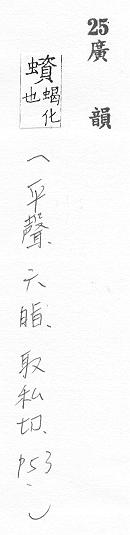 25 廣韻
蠀 蝎化也
(平聲、六脂、取私切、p53.)